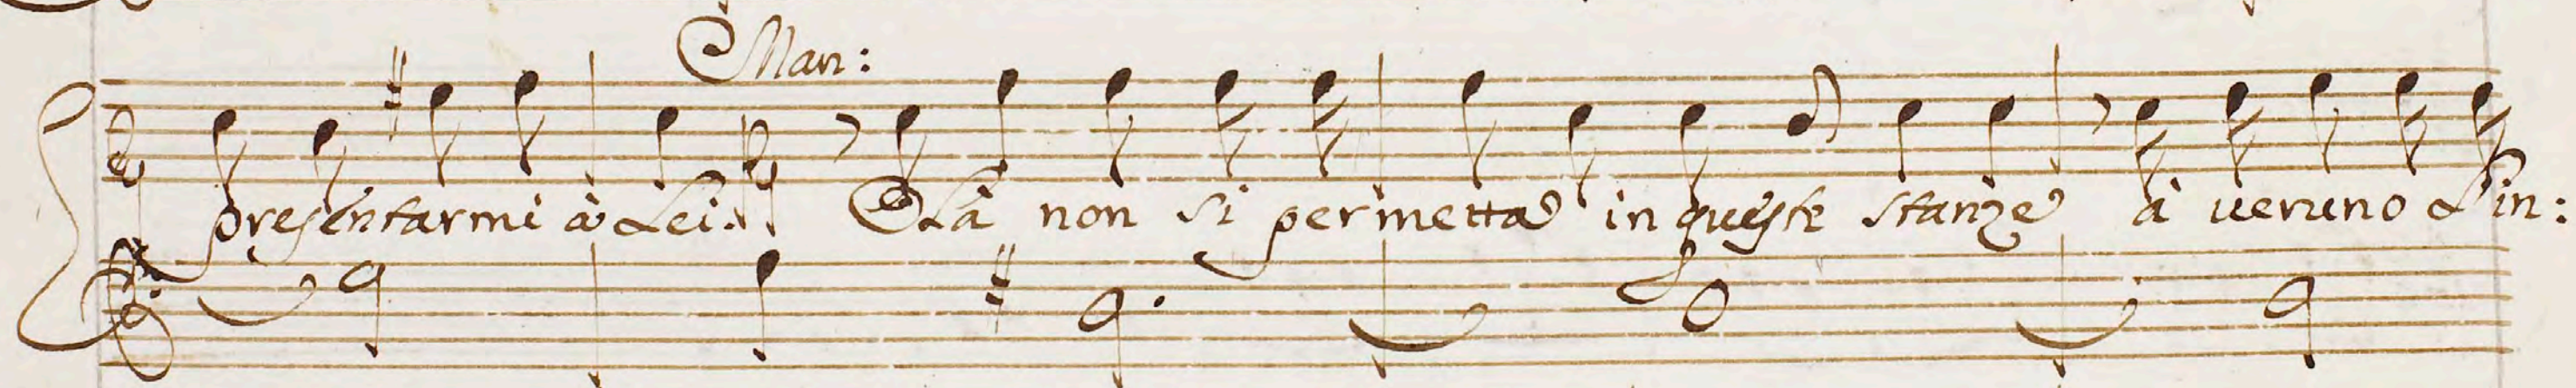 Man:
presentarmi à Lei. Olà non si permetta in queste stanze à ueruno L'in: